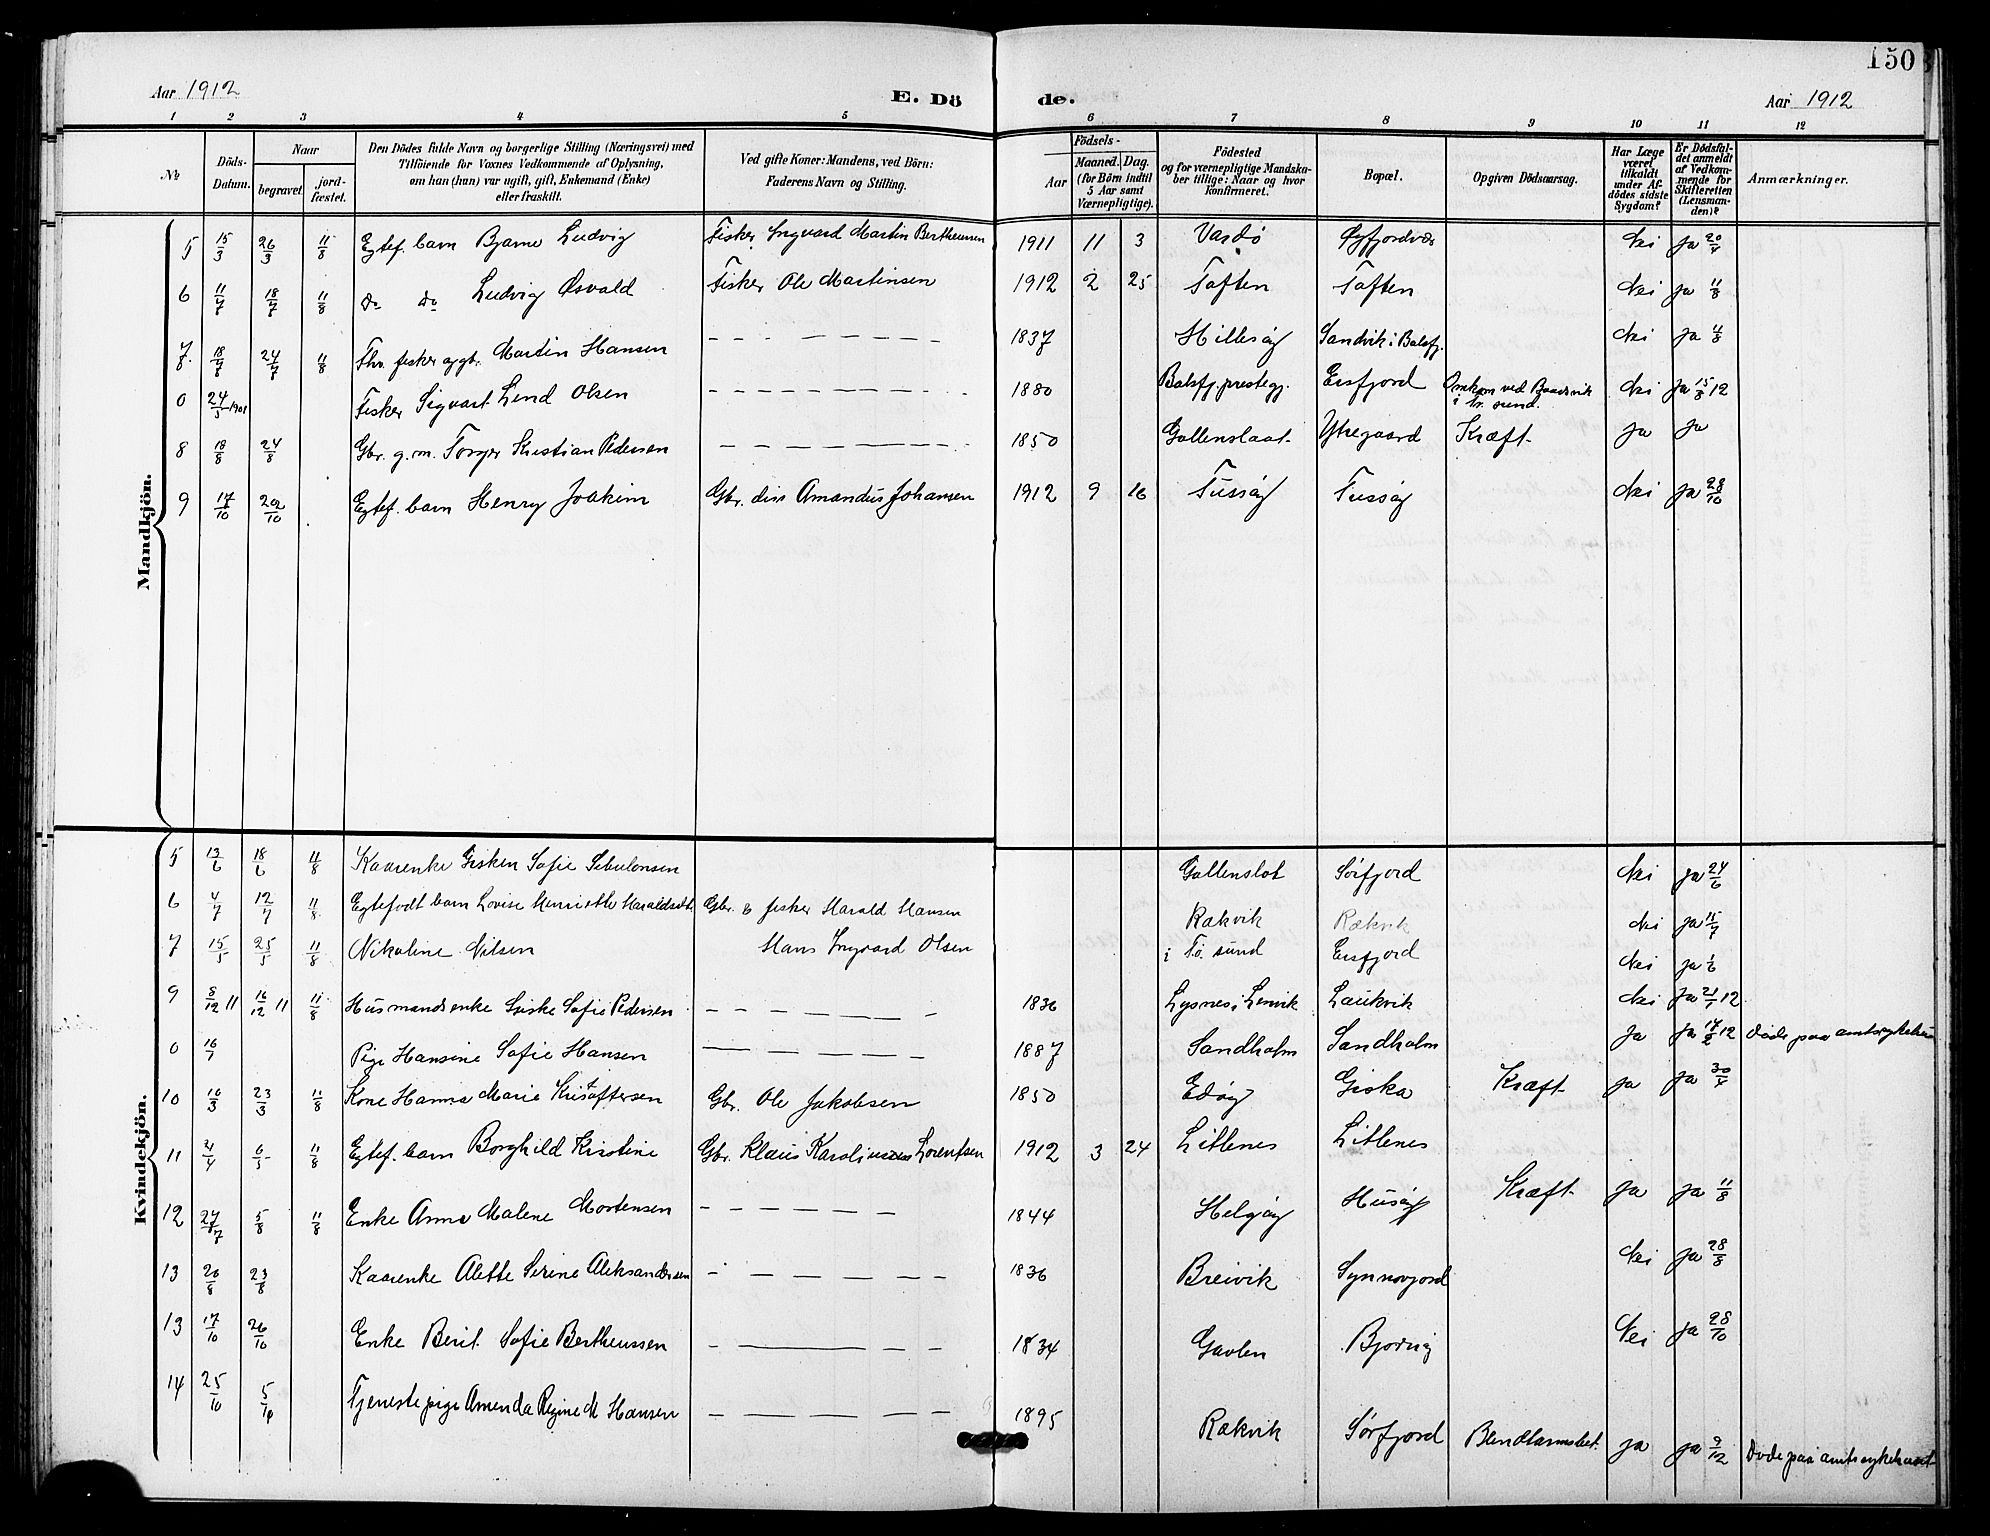 150
Aar 1912 E. Dö de. Aar 1912
1 2 3 4 5 6 7 8 9 10 11 12
No
Döds-Datum.
Naar
begravet.
jord-fæstet.
Den Dödes fulde Navn og borgerlige Stilling (Næringsvei) med
Tilföiende for Voxnes Vedkommende af Oplysning,
om han (hun) var ugift, gift, Enkemand (Enke)
eller fraskilt.
Ved gifte Koner: Mandens, ved Börn:
Faderens Navn og Stilling.
Födsels-
Aar
Maaned. Dag.
(for Börn indtil
5 Aar samt
Værnepligtige).
Födested
og for værnepligtige Mandska-
ber tillige: Naar og hvor
konfirmeret.
Bopæl.
Opgiven Dödsaarsag.
Har Læge
været
tilkaldt
under Af-
dödes sidste
Sygdom?
Er Dödsfal-
det anmeldt
af Vedkom-
mende for
Skifteretten
(Lensman-
den)?
Anmærkninger.
Mandkjön.
5 15/3 26/3 11/8 Egtef. barn Bjarne Ludvig Fisker Ingvard Martin Bertheussen 1911 11 3 Vardö Øyfjordvær Nei ja 20/4
6 11/7 18/7 11/8 do do Ludvig Osvald Fisker Ole Martinsen 1912 2 25 Toften Toften Nei ja 11/8
7. 18/7 24/7 11/8 Fhv. fisker og gbr. Martin Hansen — — — 1837 Hillesøy Sandvik i Balsfj. Nei ja 4/8
0 24/5 1901 Fisker Sigvart Lind Olsen — — — 1880 Balsfj. prestegj. Ersfjord Omkom ved Baadsvik Nei ja 15/8 12
i Tr. sund.
8 18/8 24/8 Gbr. g.m. Torger Kristian Pedersen — — — 1850 Gollenslaat Ytregaard Kræft ja ja
9 17/10 20/10 Egtef. barn Henry Joakim Gbr. Amandus Johansen 1912 9 16 Tussøy Tussøy Nei ja 28/10
Kvindekjön.
5 13/6 18/6 11/8 Kaarenke Gisken Sofie Sebulonsen Gollenslot Sørfjord Nei ja 24/6
6 4/7 12/7 11/8 Egtefødt barn Lovise Henriette Haraldsdtr Gbr. & fisker Harald Hansen Rakvik Rakvik Nei ja 15/7
7 15/5 25/5 11/8 Nikoline Nilsen Hans Ingvard Olsen i To. sund Ersfjord Nei ja 1/6
9 8/12 11 16/12 11 11/8 Husmandsenke Giske Sofie Pedersen — — — 1836 Lysnes i Lenvik Laukvik Nei ja 21/1 12
0 16/1 Pige Hansine Sofie Hansen — — — 1887 Sandholm Sandholm Ja ja 17/2 12 Døde paa amtssykehus
10 16/3 23/3 11/8 Kone Hanna Marie Kristoffersen Gbr. Ole Jakobsen 1850 Edøy Giska Kræft ja ja 30/4
11 21/4 6/5 11/8 Egtef. barn Borghild Kristine Gbr. Klaus Karolinus Lorentsen 1912 3 24 Litlenes Litlenes
12 27/7 5/8 11/8 Enke Anna Malene Mortensen — — — 1844 Helgøy Husøy Kræft ja ja 11/8
13 20/8 23/8 Kaarenke Alette Serine Aleksandersen — — — 1836 Breivik Synnovjord Nei ja 28/8
13 17/10 26/10 Enke Berit Sofie Bertheussen — — — 1834 Gavlen Bjørnøy Nei ja 28/10
14 25/10 5/10 Tjenestepige Amanda Regine M Hansen — — — 1895 Rakvik Sørfjord Blindtarmsbet. ja ja 9/12 Døde paa amtssykehuset